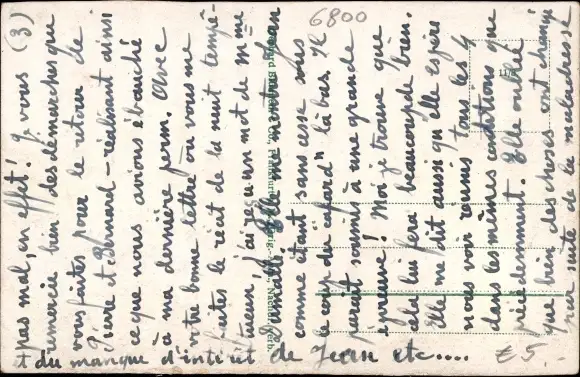 (3)
pas mal, en effet! Je vous
remercie bien des démarches que
vous faites pour le retour de
Pierre et Bernard – réalisant ainsi
ce que nous avions ébauché
à ma dernière perm. Avec
votre bonne lettre où vous me
faites le récit de la nuit tempê-
tueuse, j'ai reçu un mot de Mme
Elle me montre Jean
comme étant sans cesse sous
le coup du "cafard" là bas. Il
paraît soumis à une grande
épreuve! Moi je trouve que
cela lui fera beaucoup de bien.
Elle me dit aussi qu'elle espère
nous voir réunis tous les 4
dans les mêmes conditions que
précédemment. Elle oublie
que bien des choses ont changé
par suite de la maladresse
et du manque d'intérêt de Jean etc....
6800
£5.-